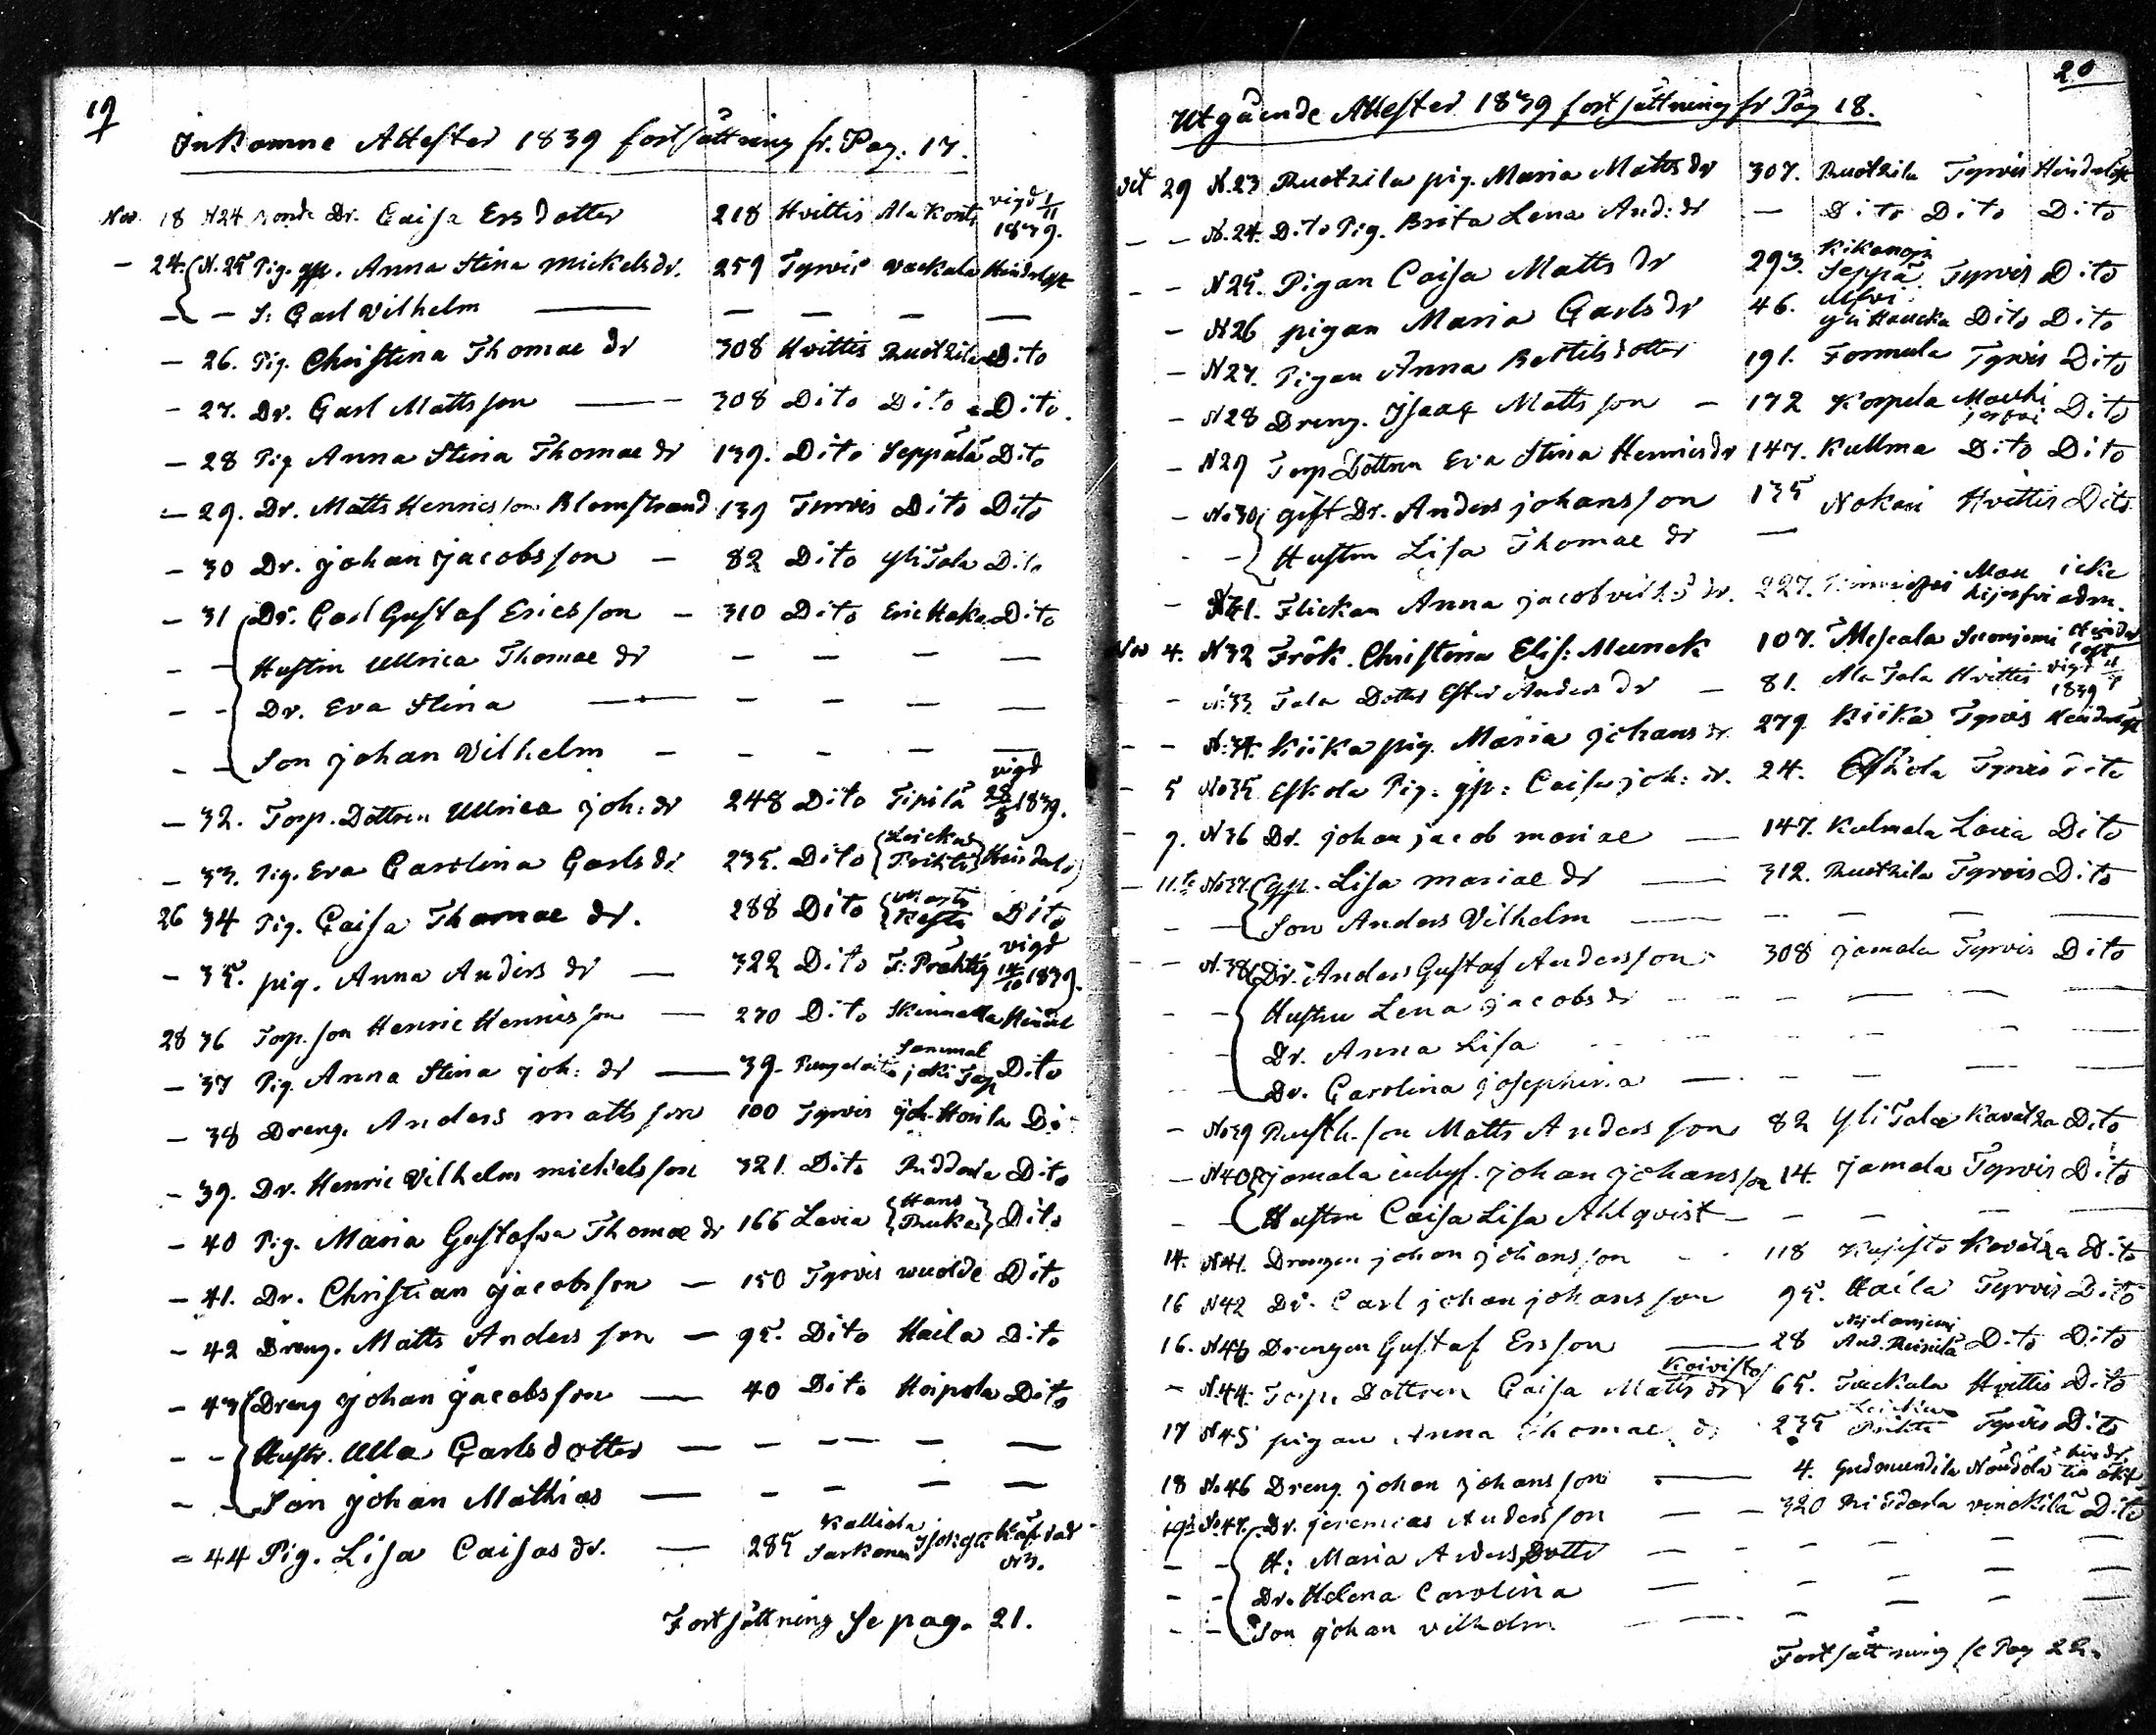 19
Inkomne Attester 1839 fortsättning fr. Pag. 17.
Nov. 18 N24 Bonde Dr. Caisa Ersdotter 218 Hvittis Ala Konti vigd 1/11 1839.
- 24. N.25 Pig. gp. Anna Stina Mickelsdr. 259 Tyrvis Vackala Hindrslöst
- - S: Carl Vilhelm — — — — —
- 26. Pig. Christina Thomae dr 308 Hvittis Ruotzila Dito
- 27. Dr. Carl Mattsson — 308 Dito Dito Dito.
- 28 Pig Anna Stina Thomae dr 139. Dito Seppälä Dito
- 29. Dr. Matts Henricsson Blomstrand 139 Tyrvis Dito Dito
- 30 Dr. Johan Jacobsson - 82 Dito Yli Tala Dito
- 31 Dr. Carl Gustaf Ericsson - 310 Dito Eric Haka Dito
- - Hustrun Ullrica Thomae dr — — — —
- - Dr. Eva Stina — — — — —
- - Son Johan Vilhelm - — — — —
- 32. Torp. Dottren Ullrica Joh: dr 248 Dito Tipilä vigd 28/3 1839.
- 33. Pig. Eva Carolina Carlsdr 235. Dito Prihti Hindrslö
26 34 Pig. Caisa Thomae dr. 288 Dito Dito
- 35. pig. Anna Anders dr — 322 Dito vigd 14/10 1839.
28 36 Torp. son Henric Henricsson — 270 Dito Skinnalla Hindrsl
- 37 Pig. Anna Stina Joh: dr — 39. Pungalaitio Sammal joki Torp Dito
- 38 Dreng. Anders Mattsson 100 Tyrvis Joh. Hoila Di
- 39. Dr. Henric Vilhelm Mickelsson 321 Dito Riddala Dito
- 40 Pig. Maria Gustafva Thomae dr 166 Lavia Hans Ruka Dito
- 41. Dr. Christian Jacobsson — 150 Tyrvis Dito
- 42 Dreng. Matts Andersson — 95. Dito Haila Dito
- 43 Dreng Johan Jacobsson — 40 Dito Hoipola Dito
- - Hustr. Ulla Carlsdotter — — — — —
- - Son Johan Mathias — — — — —
- 44 Pig. Lisa Caisas dr. — 285 Kalliala Sarkana
Fortsättning se pag. 21.
20
Utgående Attester 1839 fortsättning fr Pag 18.
Oct 29 N.23 Ruotzila pig. Maria Matts dr 307. Ruotzila Tyrvis Hindrslöst
- - N.24. Dito Pig. Brita Lena And: dr — Dito Dito Dito
- - N25. Pigan Caisa Matts dr 293. Kikanoja Seppä Tyrvis Dito
- N26 pigan Maria Carls dr 46. Dito Dito
- N27. Pigan Anna Bertilsdotter 191. Formula Tyrvis Dito
- N28 Dreng. Isaac Mattsson - 172 Korpela Mouhijärfvi Dito
- N29 Torp Dottren Eva Stina Henricsdr 147. Kullma Dito Dito
- No 30 gift Dr. Anders Johansson 135 Nokari Hvittis Dito
- - Hustrun Lisa Thomae dr —
- N31. Flickan Anna Jacobvilhs dr. 227. Mouhijerfvi icke adm.
Nov 4. N32 Frök. Christina Elis: Munck 107. Meskala Suonjemi Hindrslöst
- N:33 Tala Dotter Ester Anders dr — 81. Ala Tala Hvittis vigd 1839
- - N:34. Kiika pig. Maria Johansdr 279. Kiika Tyrvis Hindrslöst
- 5 No35 Eskola Pig. gp: Caisa Joh: dr. 24. Eskola Tyrvis Dito
- 9. N36 Dr. Johan Jacob Mariae — 147. Kulmala Lavia Dito
- 11.te No37. gp. Lisa Mariae dr — 312. Ruotzila Tyrvis Dito
- - Son Anders Vilhelm — — — — —
- - N.38 Dr. Anders Gustaf Andersson 308 Jamala Tyrvis Dito
- - Hustru Lena Jacobs dr - - — — —
- Dr. Anna Lisa
- - Dr. Carolina Josephina — - — — —
- No39 Rusth. son Matts Andersson 82 Yli Tala Kavatza Dito
- N40 Jamala inhys. Johan Johansson 14. Jamala Tyrvis Dito
- - Hustru Caisa Lisa Ahlqvist — — — — —
14. N41. Drengen Johan Johansson 118 Kujisto Kavatza Dito
16 N42 Dr. Carl Johan Johansson 95. Haila Tyrvis Dito
16. N43 Drengen Gustaf Ersson — 28 And. Dito Dito
- N.44. Torp. Dottren Caisa Matts dr Koivisto 65. Tackala Hvittis Dito
17 N45 pigan Anna Thomae dr 235 Prihti Tyrvis Dito
18 No46 Dreng Johan Johansson — 4. Gudmundila Nousiala
19de No47. Dr. Jeremias Andersson — 320 Riddala Dito
- - H: Maria Andersdotter — — — — —
- - Dr. Helena Carolina — — — — —
- - Son Johan Vilhelm — — — — —
Fortsättning se Pag 22.